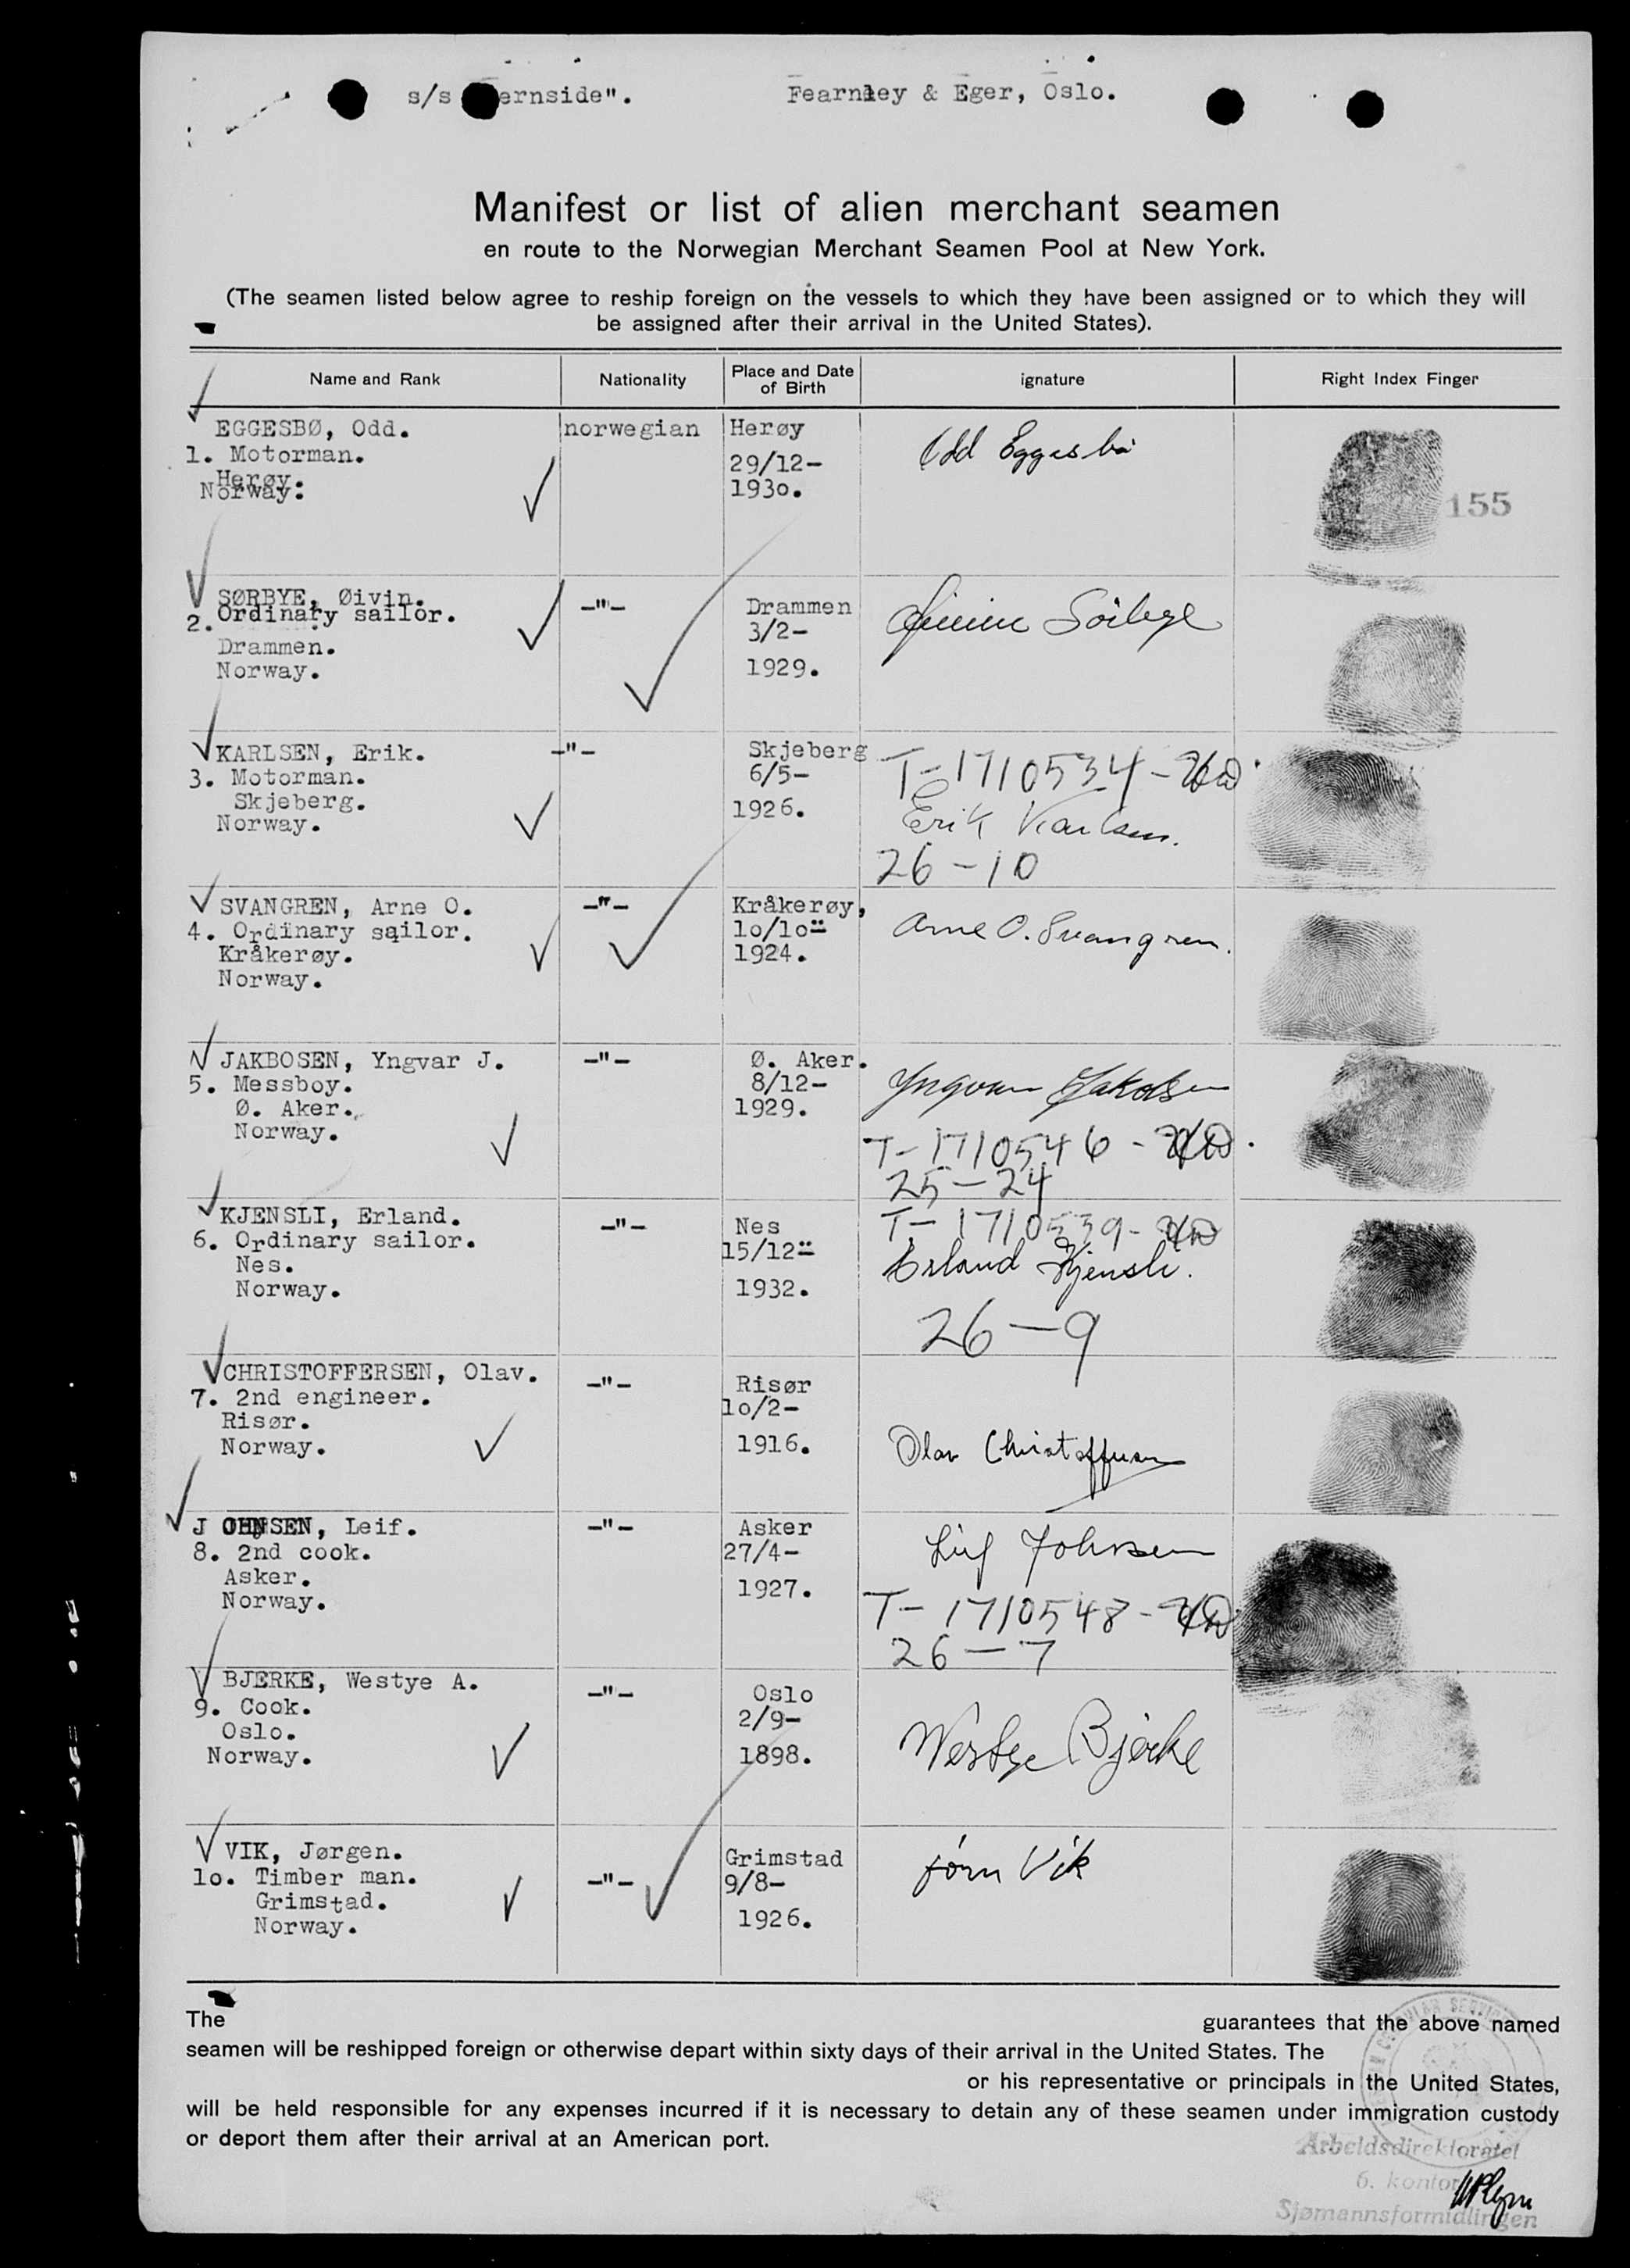 s/s ernside". Fearnley & Eger, Oslo.
Manifest or list of alien merchant seamen
en route to the Norwegian Merchant Seamen Pool at New York.
(The seamen listed below agree to reship foreign on the vessels to which they have been assigned or to which they will
be assigned after their arrival in the United States).
Name and Rank Nationality Place and Date of Birth ignature Right Index Finger
EGGESBØ, Odd. norwegian Herøy Odd Eggesbø
1. Motorman. 29/12-
Herøy. 1930.
Norway. 155
SØRBYE, Øivin. -"- Drammen Øivin Sörbye
2. Ordinary sailor. 3/2-
Drammen.
Norway. 1929.
KARLSEN, Erik. -"- Skjeberg T-1710534-
3. Motorman. 6/5-
Skjeberg. 1926. Erik Karlsen.
Norway. 26-10
SVANGREN, Arne O. -"- Kråkerøy, Arne O. Svangren.
4. Ordinary sailor. 10/10-
Kråkerøy. 1924.
Norway.
JAKBOSEN, Yngvar J. -"- Ø. Aker. Yngvar Jakobsen
5. Messboy. 8/12-
Ø. Aker. 1929.
Norway. T-1710546-
25-24
KJENSLI, Erland. -"- Nes T-1710539-
6. Ordinary sailor. 15/12- Erland Kjensli.
Nes.
Norway. 1932. 26-9
CHRISTOFFERSEN, Olav. -"- Risør
7. 2nd engineer. 10/2-
Risør.
Norway. 1916. Olav Christoffersen
JOHNSEN, Leif. -"- Asker Leif Johnsen
8. 2nd cook. 27/4-
Asker. 1927.
Norway. T-1710548-
26-7
BJERKE, Westye A. -"- Oslo
9. Cook. 2/9-
Oslo. Westye Bjerke
Norway. 1898.
VIK, Jørgen. Grimstad Jörn Vik
10. Timber man. -"- 9/8-
Grimstad.
Norway. 1926.
The guarantees that the above named
seamen will be reshipped foreign or otherwise depart within sixty days of their arrival in the United States. The
or his representative or principals in the United States,
will be held responsible for any expenses incurred if it is necessary to detain any of these seamen under immigration custody
or deport them after their arrival at an American port.
Arbeidsdirektoratet
6. kontor
Sjømannsformidlingen